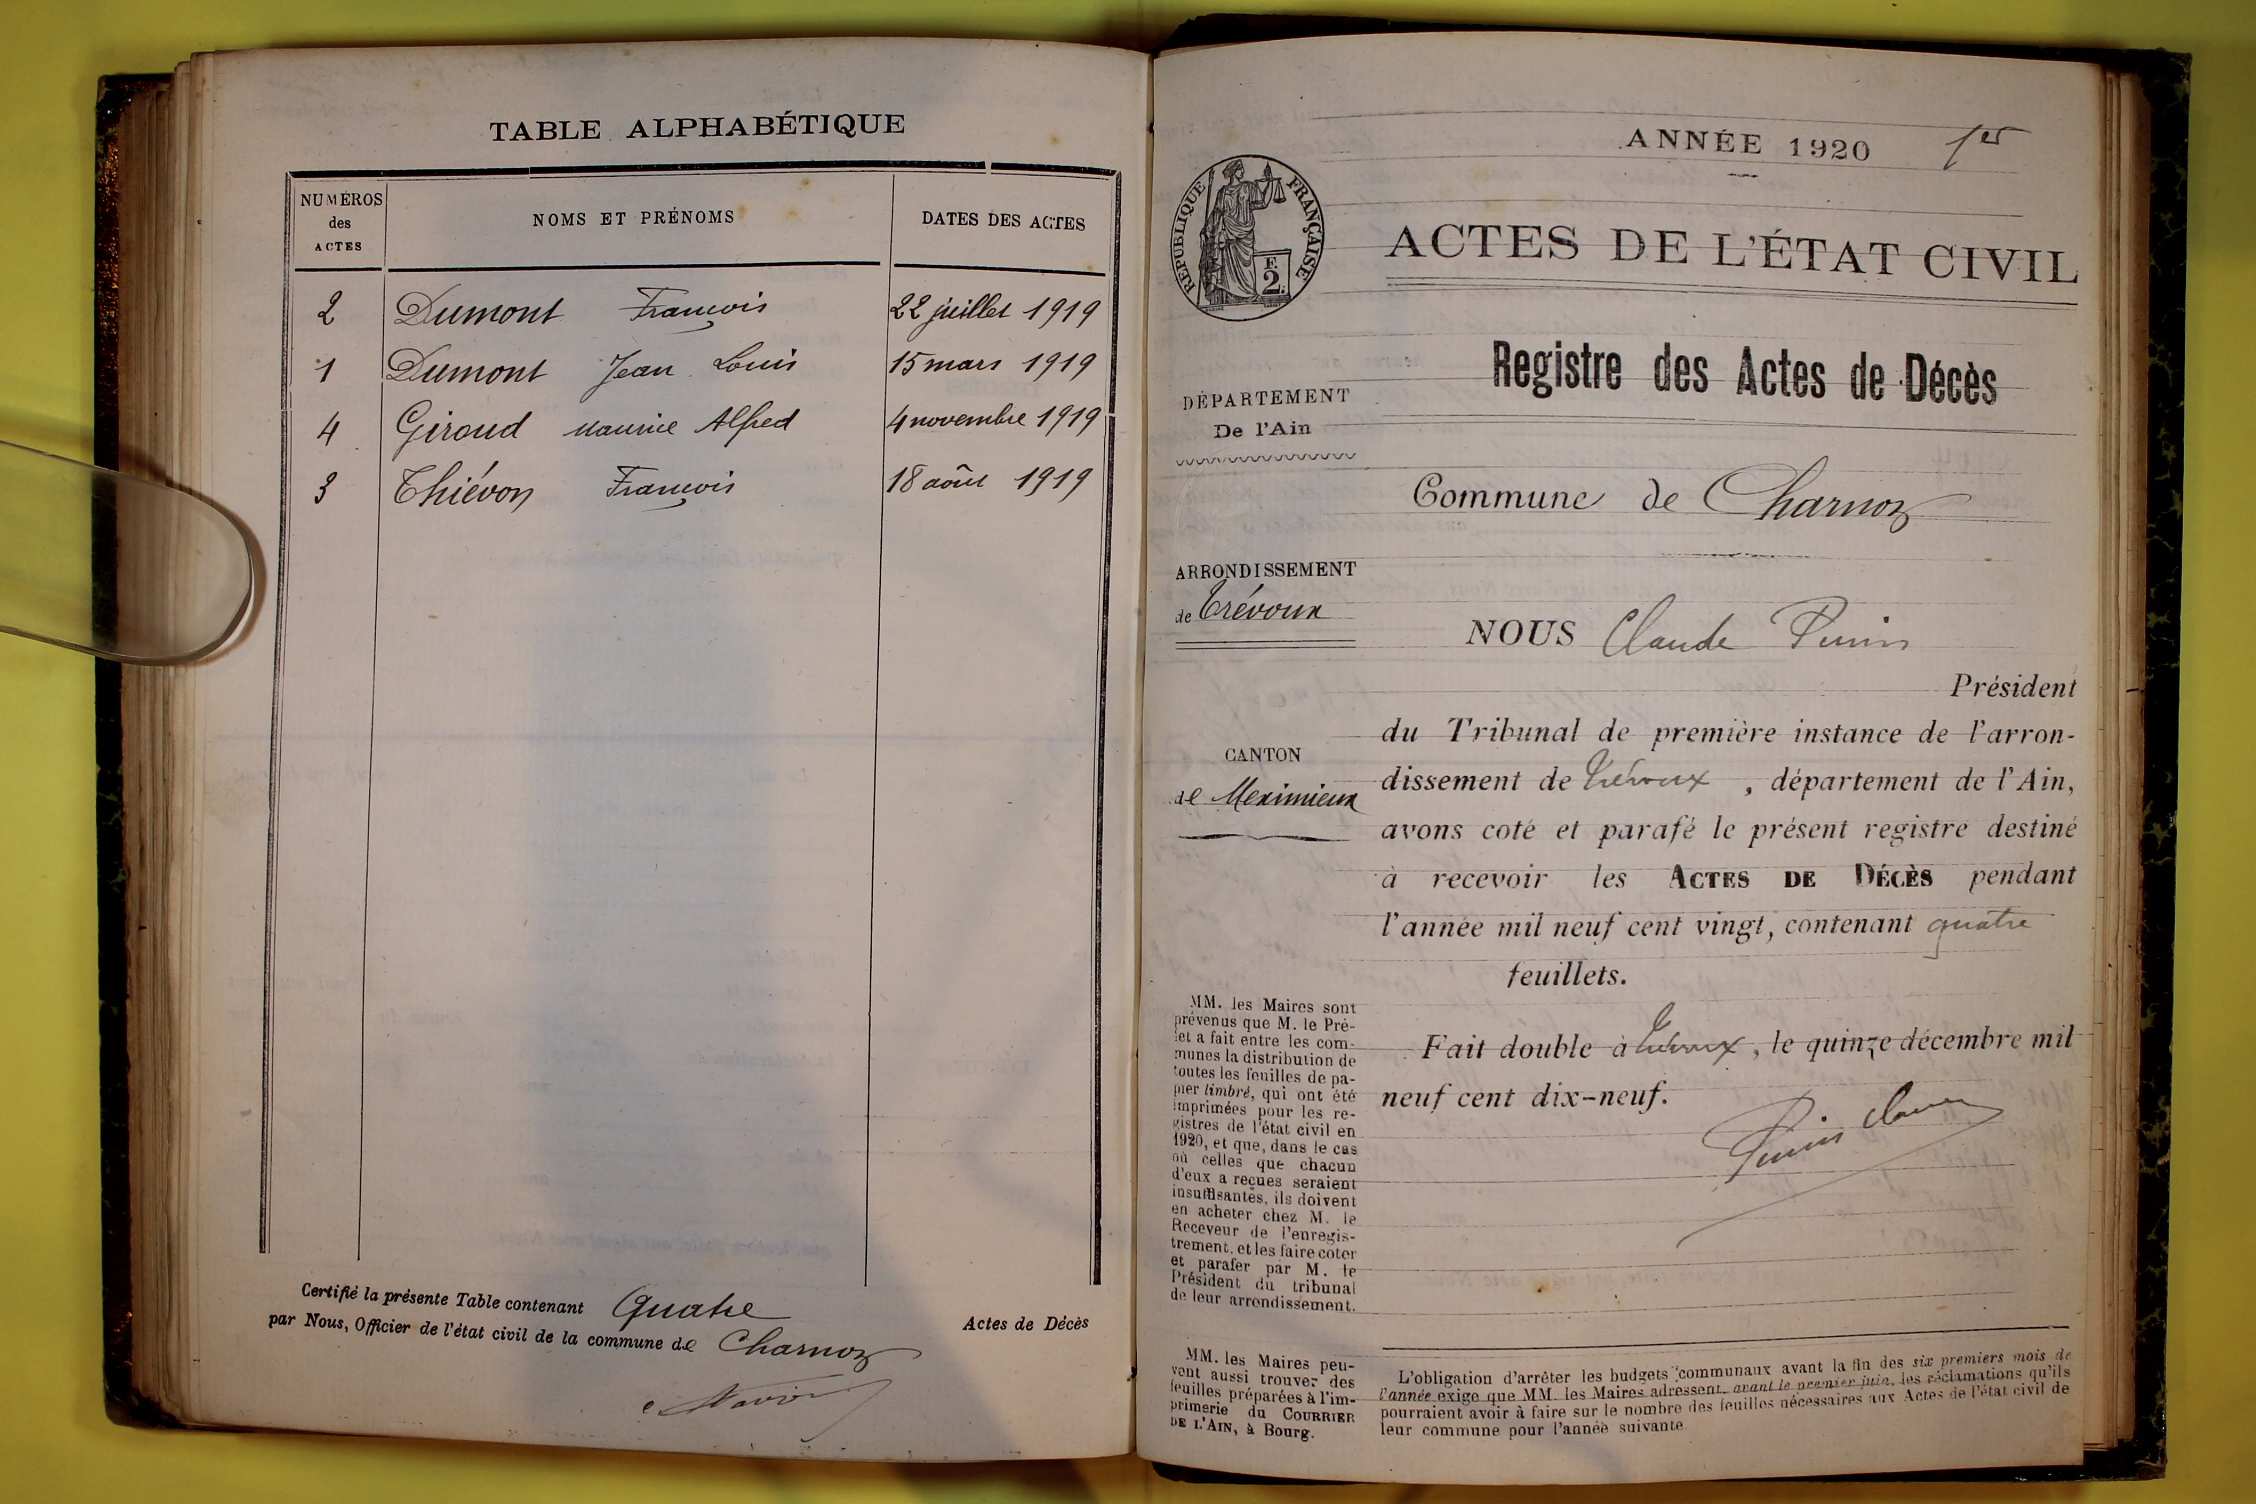 TABLE ALPHABÉTIQUE
NUMÉROS des ACTES
NOMS ET PRÉNOMS
DATES DES ACTES
2 Dumont François 22 juillet 1919
1 Dumont Jean Louis 15 mars 1919
4 Giroud Maurice Alfred 4 novembre 1919
3 Thiévon François 18 août 1919
Certifié la présente Table contenant Quatre Actes de Décès
par Nous, Officier de l'état civil de la commune de Charnoz
ANNÉE 1920 1er
RÉPUBLIQUE FRANÇAISE
F.
2.
ACTES DE L'ÉTAT CIVIL
Registre des Actes de Décès
DÉPARTEMENT
De l'Ain
Commune de Charnoz
ARRONDISSEMENT
de Trévoux
NOUS Claude
Président
du Tribunal de première instance de l'arron-
dissement de Trévoux, département de l'Ain,
avons coté et parafé le présent registre destiné
à recevoir les ACTES DE DÉCÈS pendant
l'année mil neuf cent vingt, contenant quatre
feuillets.
Fait double à Trévoux, le quinze décembre mil
neuf cent dix-neuf.
CANTON
de Meximieux
MM. les Maires sont
prévenus que M. le Pré-
fet a fait entre les com-
munes la distribution de
toutes les feuilles de pa-
pier timbré, qui ont été
imprimées pour les re-
gistres de l'état civil en
1920, et que, dans le cas
où celles que chacun
d'eux a reçues seraient
insuffisantes, ils doivent
en acheter chez M. le
Receveur de l'enregis-
trement, et les faire coter
et parafer par M. le
Président du tribunal
de leur arrondissement.
MM. les Maires peu-
vent aussi trouver des
feuilles préparées à l'im-
primerie du COURRIER
DE L'AIN, à Bourg.
L'obligation d'arrêter les budgets communaux avant la fin des six premiers mois de
l'année exige que MM. les Maires adressent, avant le premier juin, les réclamations qu'ils
pourraient avoir à faire sur le nombre des feuilles nécessaires aux Actes de l'état civil de
leur commune pour l'année suivante